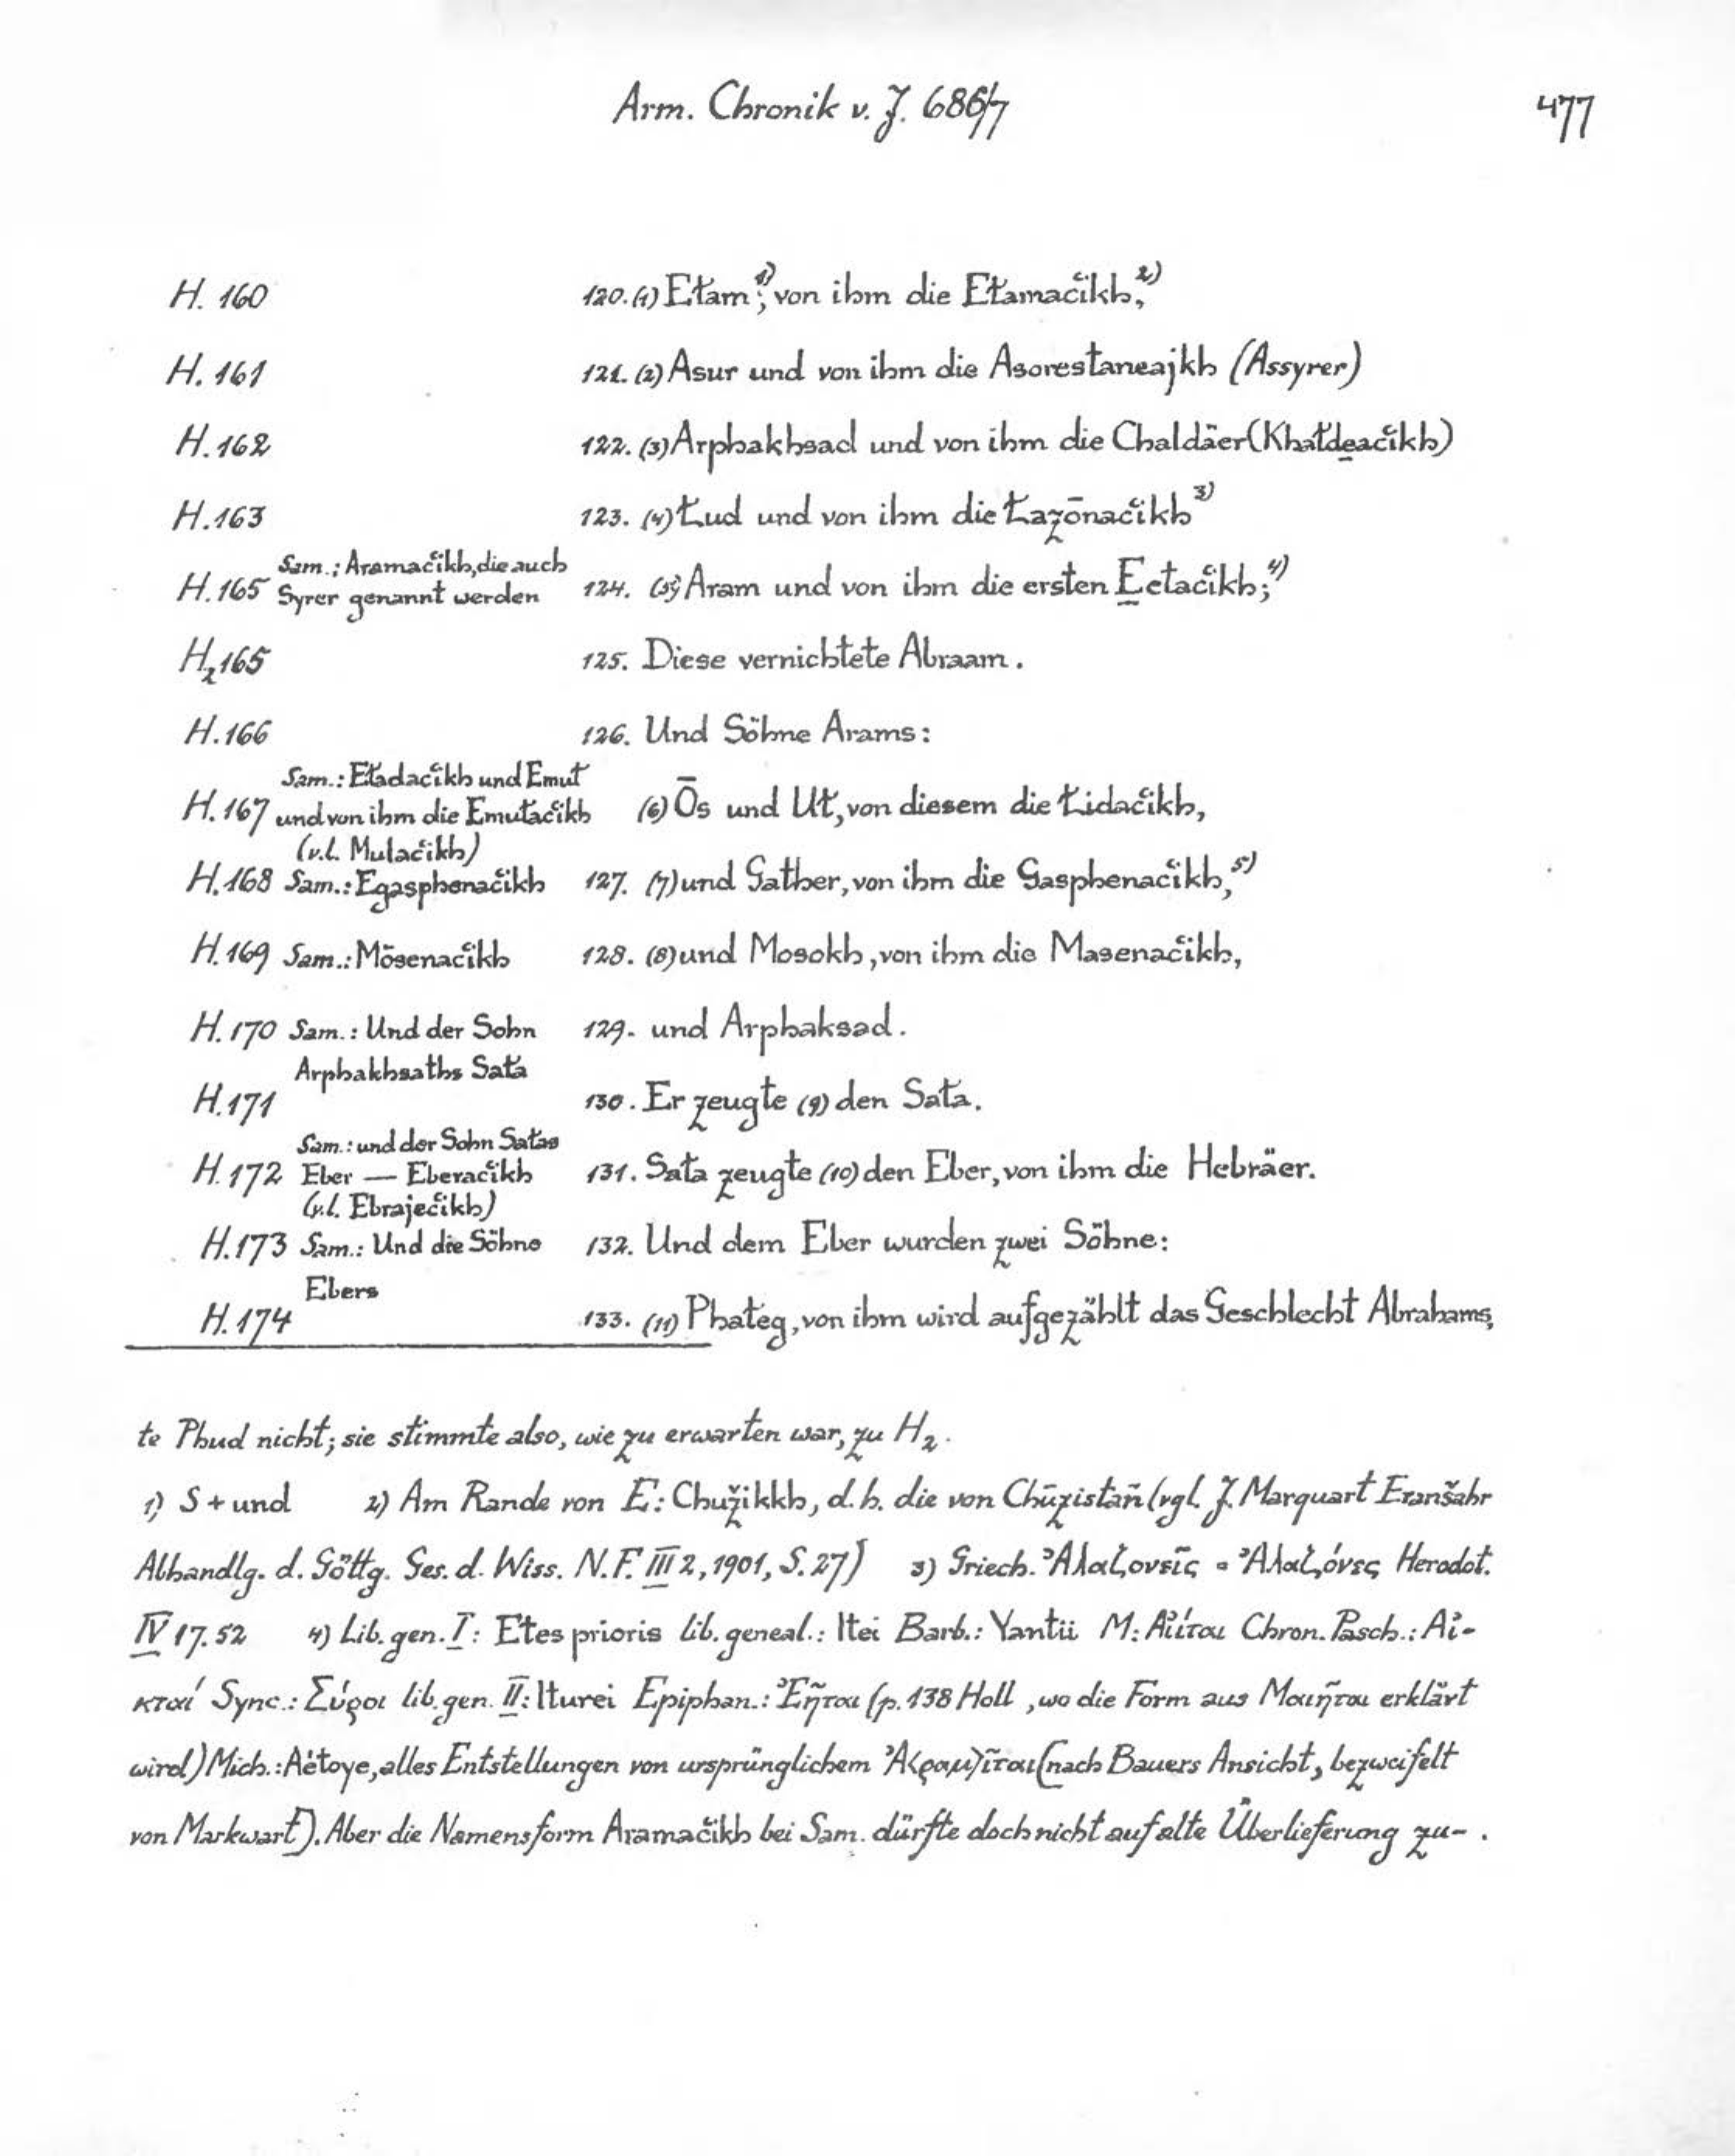 Arm. Chronik v. J. 686/7 477
H. 160 120. (1) Ełam¹⁾; von ihm die Ełamac̔ikh,²⁾
H. 161 121. (2) Asur und von ihm die Asorestaneajkh (Assyrer)
H. 162 122. (3) Arphakhsad und von ihm die Chaldäer (Khałdeac̔ikh)
H. 163 123. (4) Łud und von ihm die Łazōnac̔ikh³⁾
Sam.: Aramac̔ikh, die auch
H. 165 Syrer genannt werden 124. (5) Aram und von ihm die ersten Eetac̔ikh;⁴⁾
H₂165 125. Diese vernichtete Abraam.
H. 166 126. Und Söhne Arams:
Sam.: Eładac̔ikh und Emuł
H. 167 und von ihm die Emułac̔ikh (6) Ōs und Uł, von diesem die Łidac̔ikh,
(v.l. Mulac̔ikh)
H. 168 Sam.: Egasphenac̔ikh 127. (7) und Gather, von ihm die Gasphenac̔ikh,⁵⁾
H. 169 Sam.: Mōsenac̔ikh 128. (8) und Mosokh, von ihm die Masenac̔ikh,
H. 170 Sam.: Und der Sohn 129. und Arphaksad.
Arphakhsaths Sała
H. 171 130. Er zeugte (9) den Sała.
Sam.: und der Sohn Sałas
H. 172 Eber — Eberac̔ikh 131. Sała zeugte (10) den Eber, von ihm die Hebräer.
(v.l. Ebrajec̔ikh)
H. 173 Sam.: Und die Söhne 132. Und dem Eber wurden zwei Söhne:
Ebers
H. 174 133. (11) Phałeg, von ihm wird aufgezählt das Geschlecht Abrahams,
te Phud nicht; sie stimmte also, wie zu erwarten war, zu H₂.
1) S + und 2) Am Rande von E: Chužikkh, d. h. die von Chūzistān (vgl. J. Marquart Eranšahr
Abhandlg. d. Göttg. Ges. d. Wiss. N. F. III 2, 1901, S. 27) 3) Griech. Ἀλαζονεῖς = Ἀλαζόνες Herodot.
IV 17. 52 4) Lib. gen. I: Etes prioris lib. geneal.: Itei Barb.: Yantii M: Αἴιται Chron. Pasch.: Αἰ-
κταί Sync.: Σύροι lib. gen. II: Iturei Epiphan.: Ἐῆται (p. 138 Holl, wo die Form aus Μαιῆται erklärt
wird) Mich.: Aètoye, alles Entstellungen von ursprünglichem Ἀ<ραμ>ῖται (nach Bauers Ansicht, bezweifelt
von Markwart). Aber die Namensform Aramac̔ikh bei Sam. dürfte doch nicht auf alte Überlieferung zu-